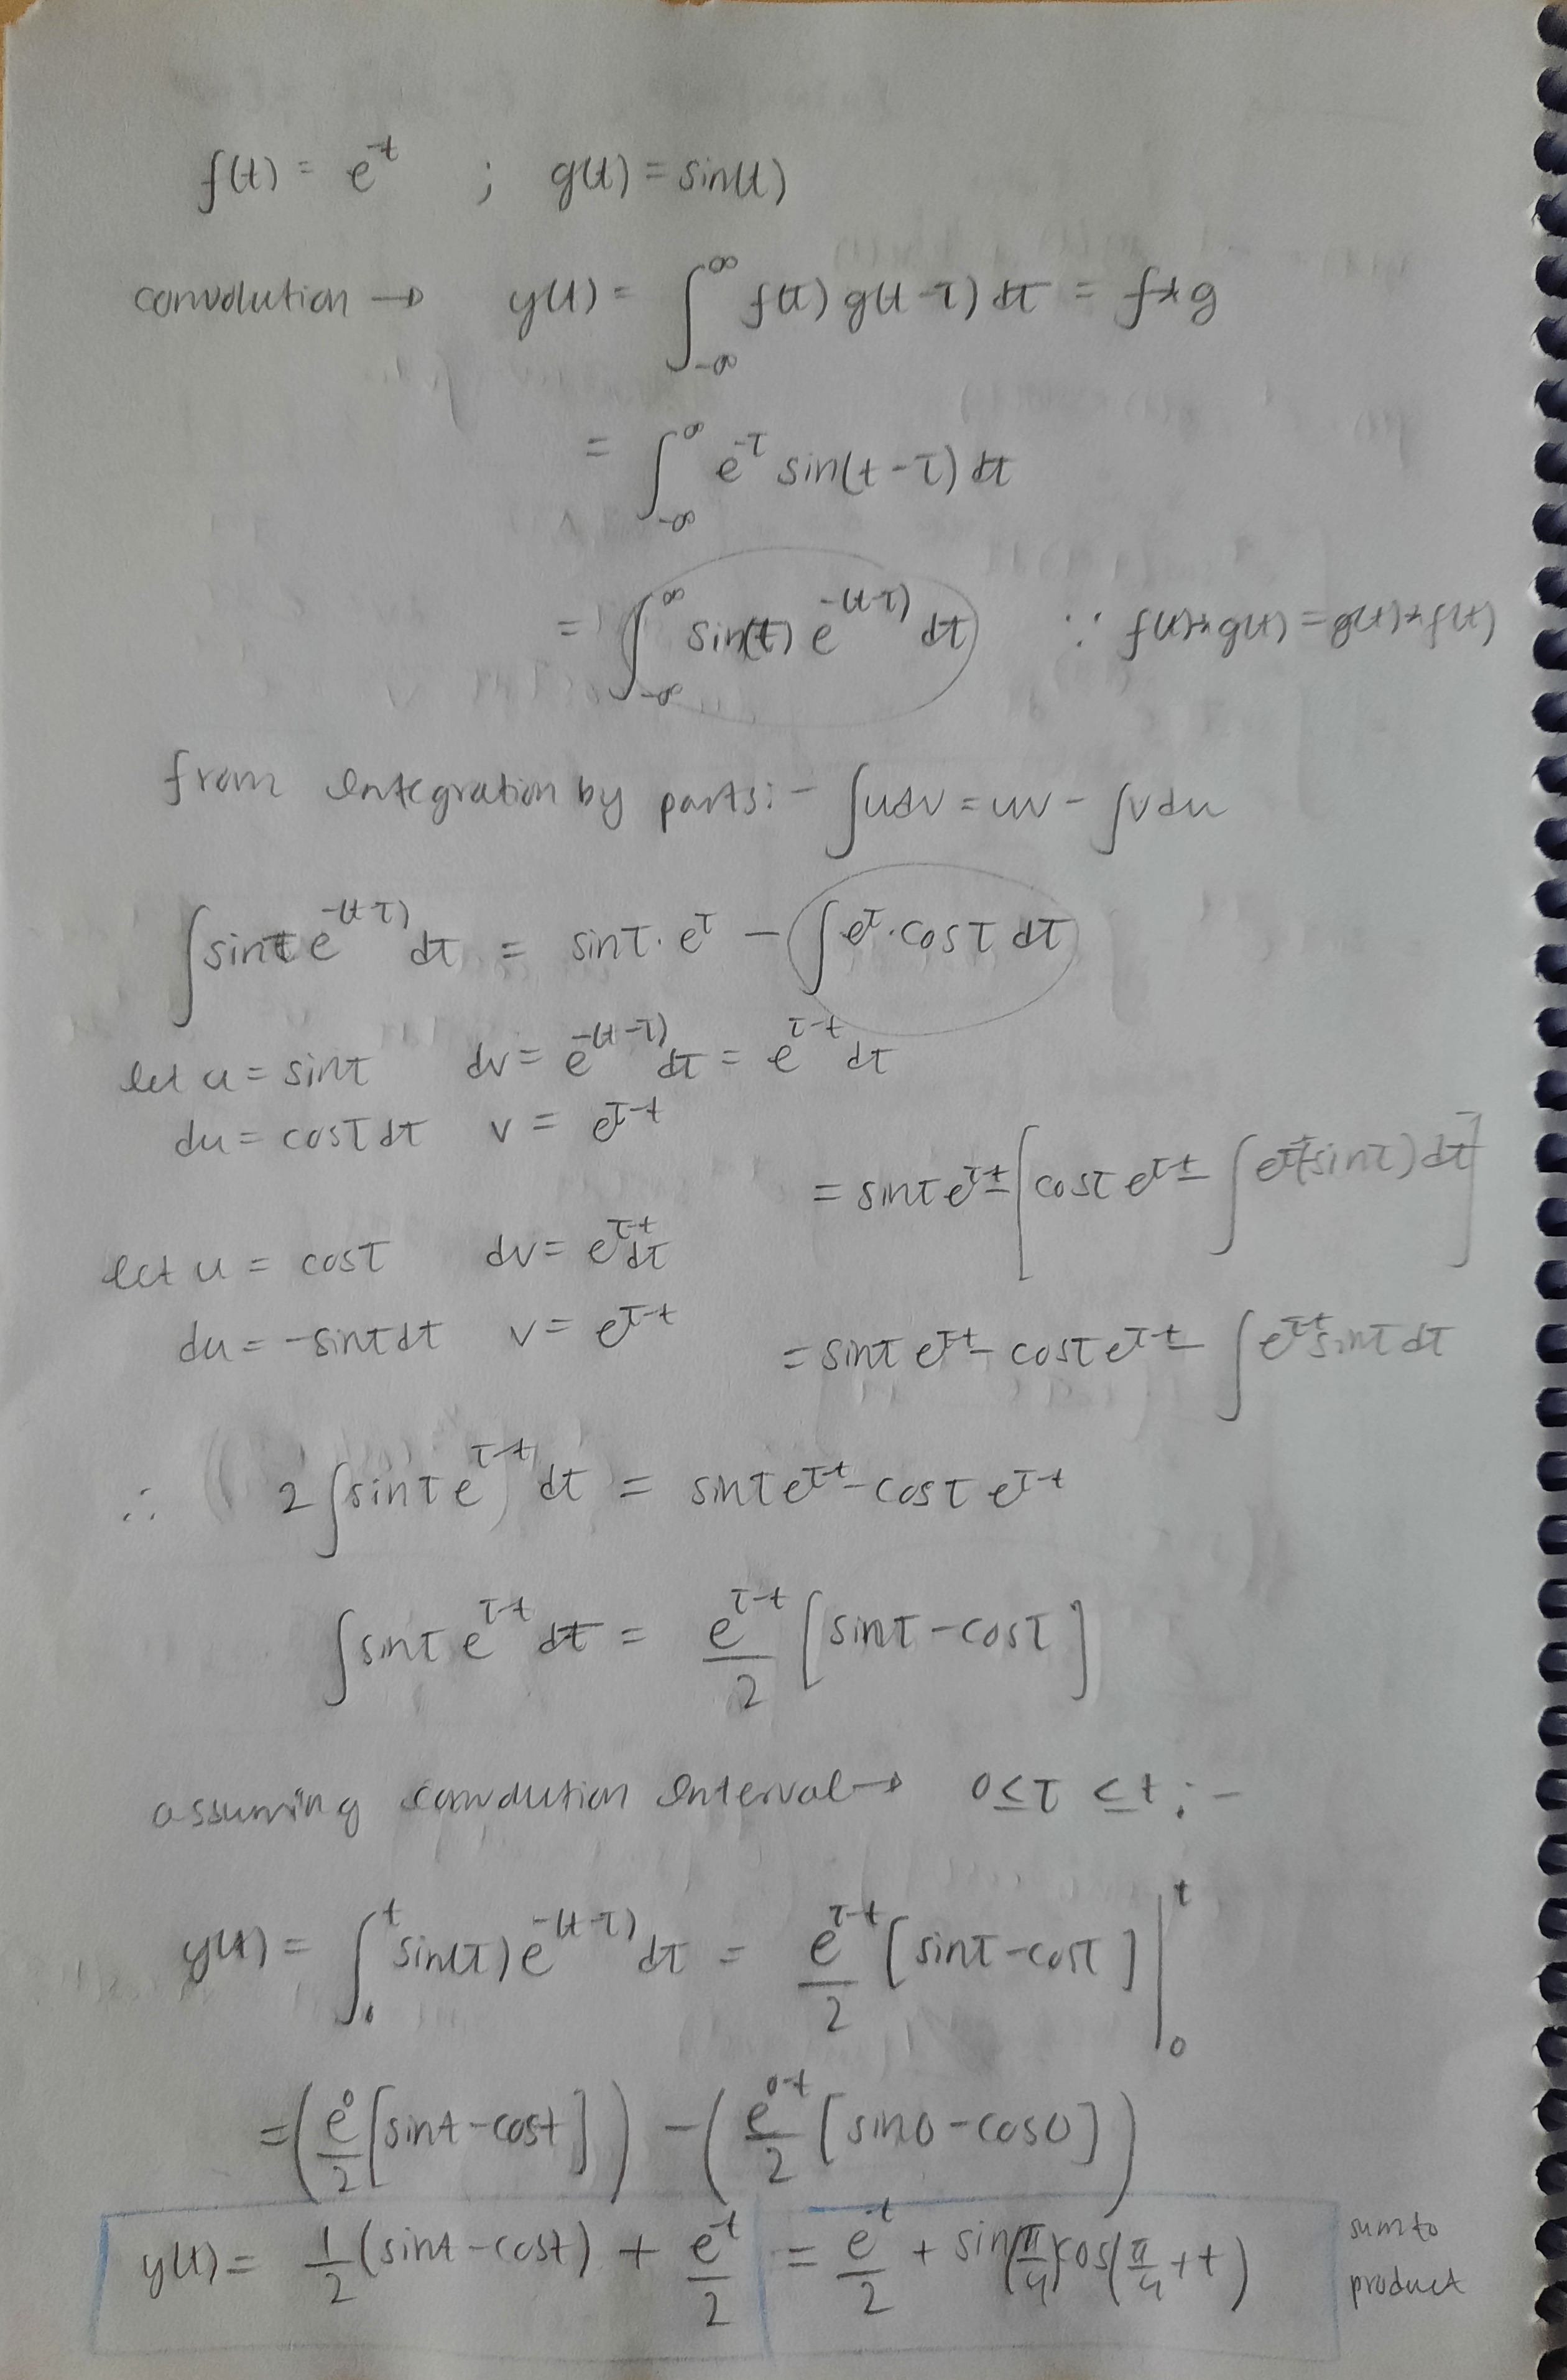 f(t) = e^-t ; g(t) = sin(t)
convolution → y(t) = ∫_-∞^∞ f(τ) g(t-τ) dτ = f*g
= ∫_-∞^∞ e^-τ sin(t-τ) dτ
= ∫_-∞^∞ sin(τ) e^-(t-τ) dτ ∵ f(t)*g(t) = g(t)*f(t)
from Integration by parts:- ∫udv = uv - ∫vdu
∫sinτ e^-(t-τ) dτ = sinτ. e^τ - ∫e^τ.cosτ dτ
let u = sinτ dv = e^-(t-τ) dτ = e^τ-t dτ
du = cosτdτ v = e^τ-t
= sinτ e^τ-t - [cosτ e^τ-t - ∫e^τ-t(-sinτ)dτ]
let u = cosτ dv = e^τ-t dτ
du = -sinτdτ v = e^τ-t
= sinτ e^τ-t - cosτ e^τ-t - ∫e^τ-t sinτ dτ
∴ 2∫sinτ e^τ-t dτ = sinτ e^τ-t - cosτ e^τ-t
∫sinτ e^τ-t dτ = e^τ-t/2 [sinτ - cosτ]
assuming convolution Interval → 0≤τ ≤t :-
y(t) = ∫_0^t sin(τ) e^-(t-τ) dτ = e^τ-t/2 [sinτ - cosτ] |_0^t
= (e^0/2 [sint - cost]) - (e^0-t/2 [sin0 - cos0])
y(t) = 1/2 (sint - cost) + e^-t/2 = e^-t/2 + sin(π/4)cos(π/4 + t)
sum to
product